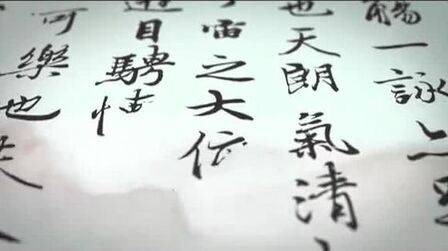 觴一詠
也天朗氣清
宙之大俯
遊目騁懷
可樂也夫